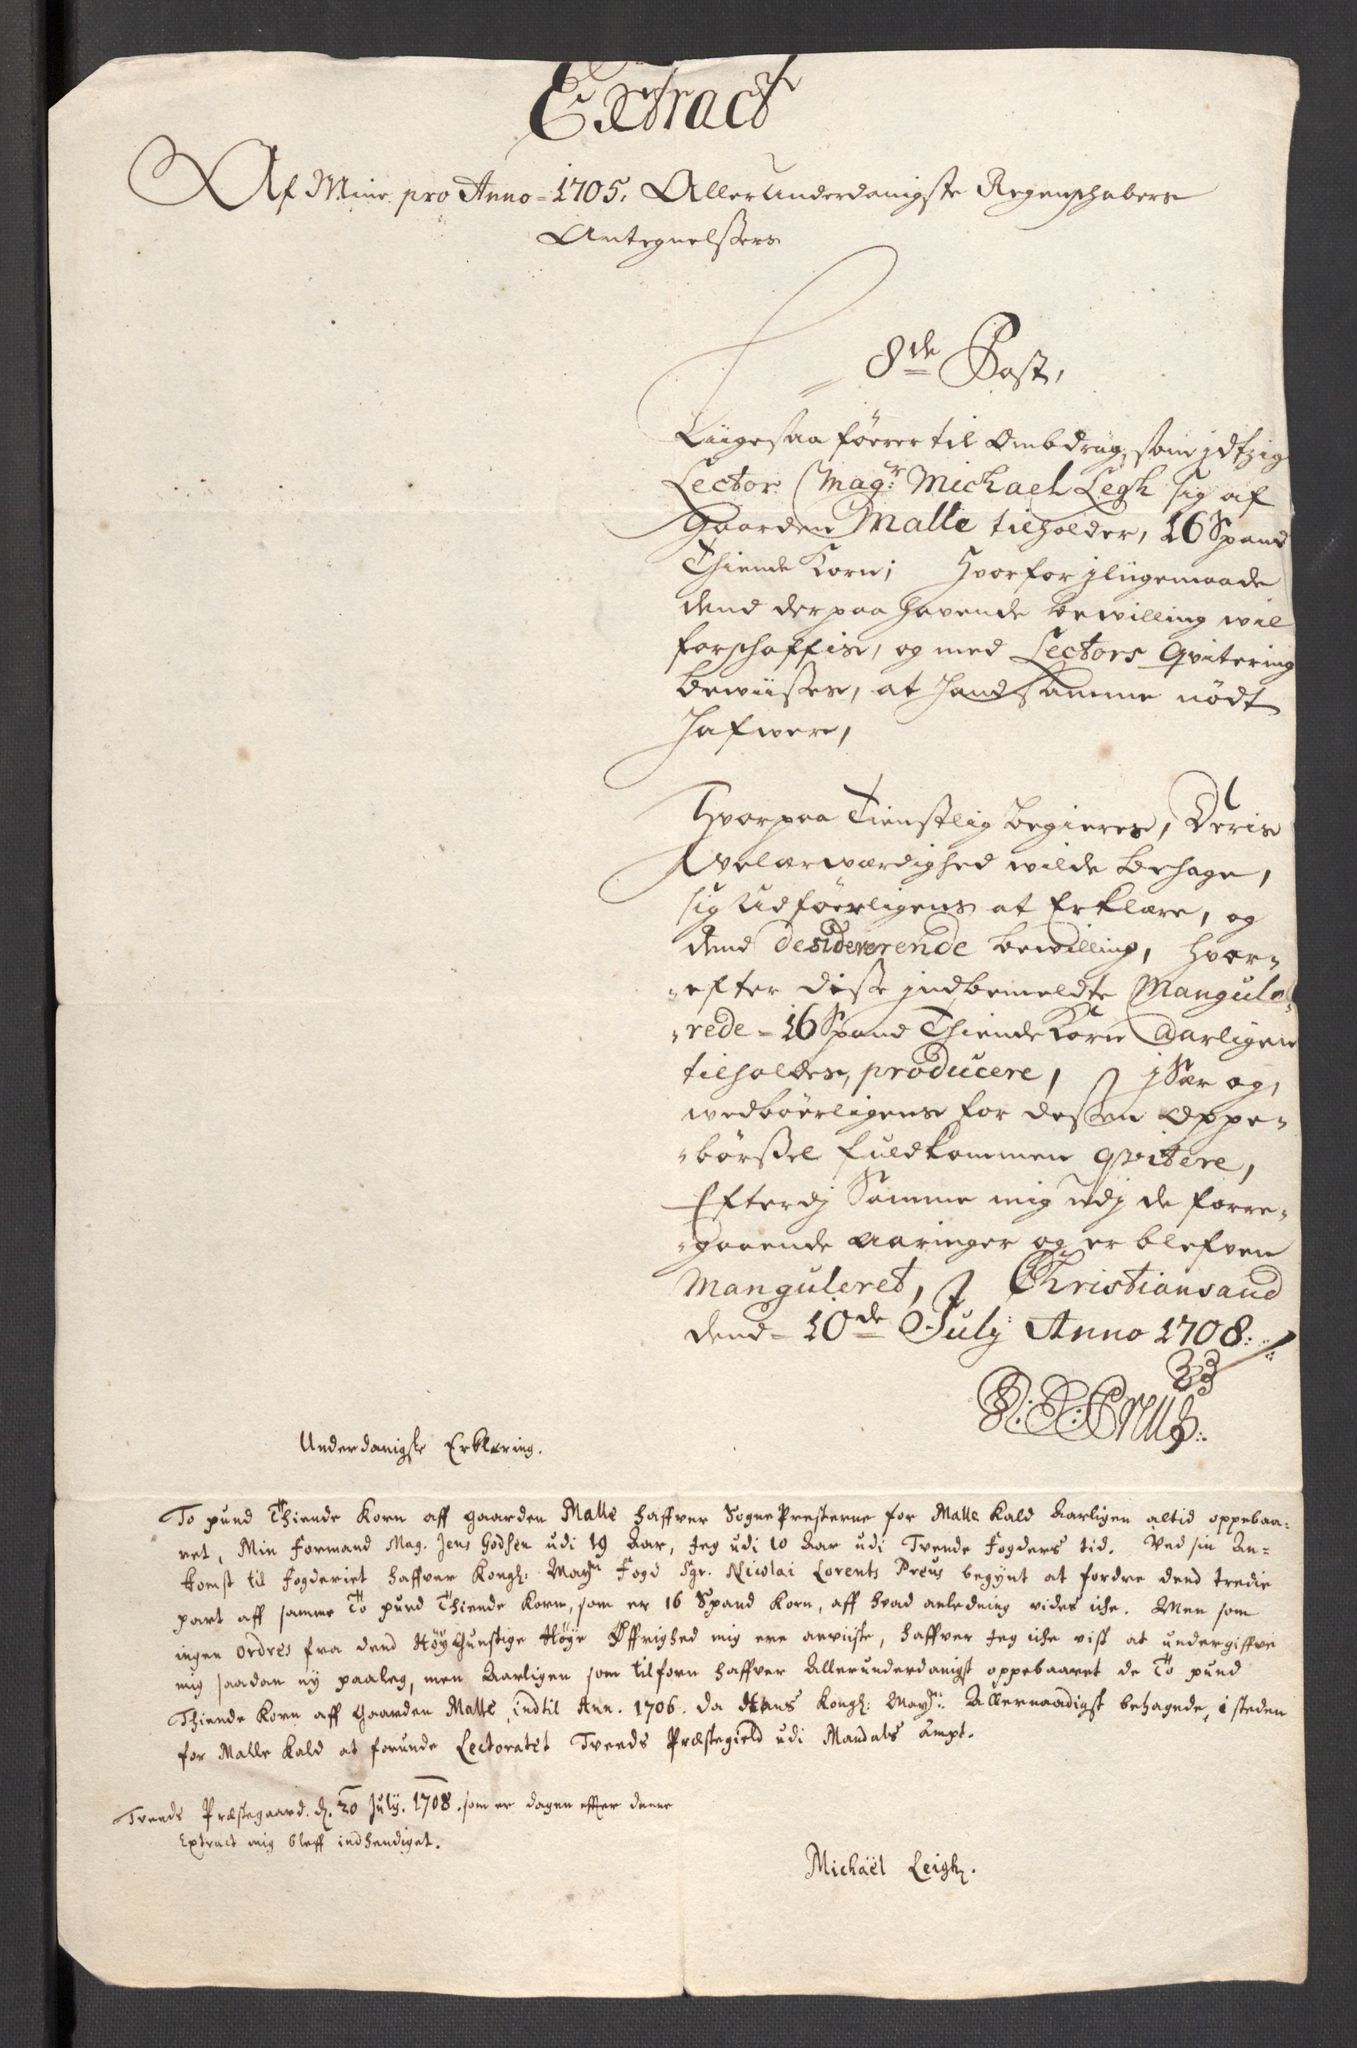 Extract
Af Mine pro Anno = 1705. Allerunderdanigste Regenschabers
Antegnelsser
8de Post,
Liigesaa förer til som jdtzig
Lector Magr: Michael Legh sig af
Gaarden Malle tilholder, 16 Spand
Thiende Korn; Hvorfor jliigemaade
dend derpaa havende bewilling wil
forschaffis, og med Lectors Qvitering
bewiisses, at hand samme nödt
hafwer,
Hvorpaa Tienstlig begieres, Deris
Velærwærdighed wilde behage,
sig udföerligens at Erklære, og
dend desidererende bewilling, hvor-
-efter disse jndbemeldte Mangule-
-rede = 16 Spand Thiende Korn Aarligen
tilholdes, producere, jSær og,
wedböerligens for dessen oppe-
-börssel fuldkommen qvitere,
Efterdj Samme mig udj de forre-
-gaaende aaringer og er blefven
Manguleret, Christiansand
dend = 10de July Anno 1708.
N: L: Preus
Underdanigste Erklæring.
To pund Thiende Korn aff gaarden Malle haffver SognePresterne for Malle Kald Aarligen altid oppebaa-
ret, Min Formand Mag. Jens Godsen udi 19 Aar, Jeg udi 10 Aar udi Tvende Fogders tid. Ved sin An-
komst til Fogderiet haffver Kongl: Mayts Fogd Sgr. Nicolai Lorents Preus begynt at fordre dend tredie
part aff samme To pund Thiende Korn, som er 16 Spand Korn, aff hvad anledning vides iche. Men som
ingen Ordres fra dend HöyGunstige Höye Öffrighed mig ere anviiste, haffver Jeg iche vist at undergiffve
mig saadan ny paaleg, men Aarligen som tilforn haffver Allerunderdanigst oppebaaret de To pund
Thiende Korn aff Gaarden Malle, indtil Ann. 1706. da Hans Kongl: Mayt: Allernaadigst behagede, i steden
for Malle Kald at forunde Lectoratet Tveeds Præstegield udi Mandals Ampt.
Tveeds Præstegaard. d. 20 July. 1708. som er dagen effter denne
Extract mig bleff indhendiget.
Michaël Leigh.